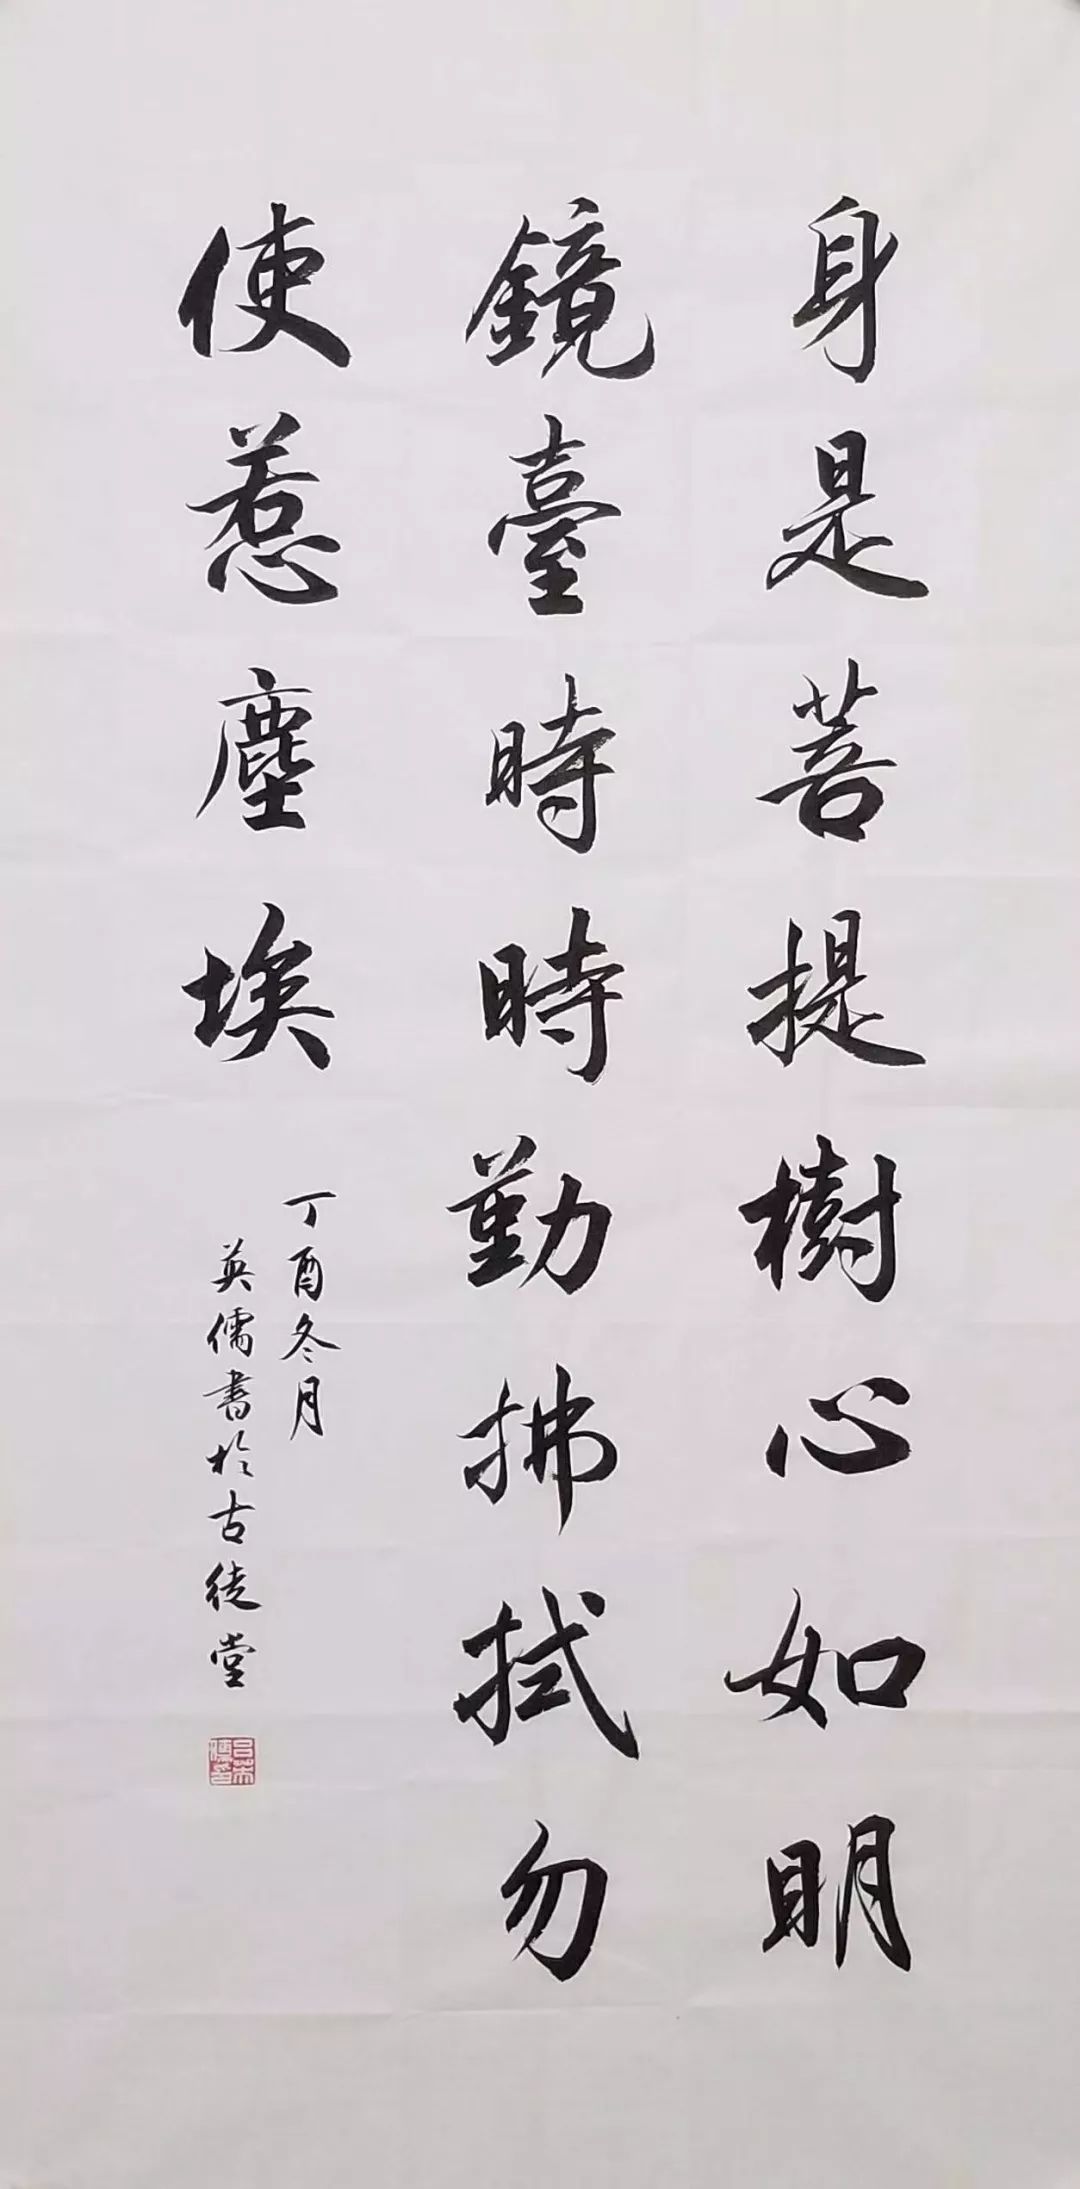 身是菩提樹心如明
鏡臺時時勤拂拭勿
使惹塵埃
丁酉冬月
英儒書於古徒堂